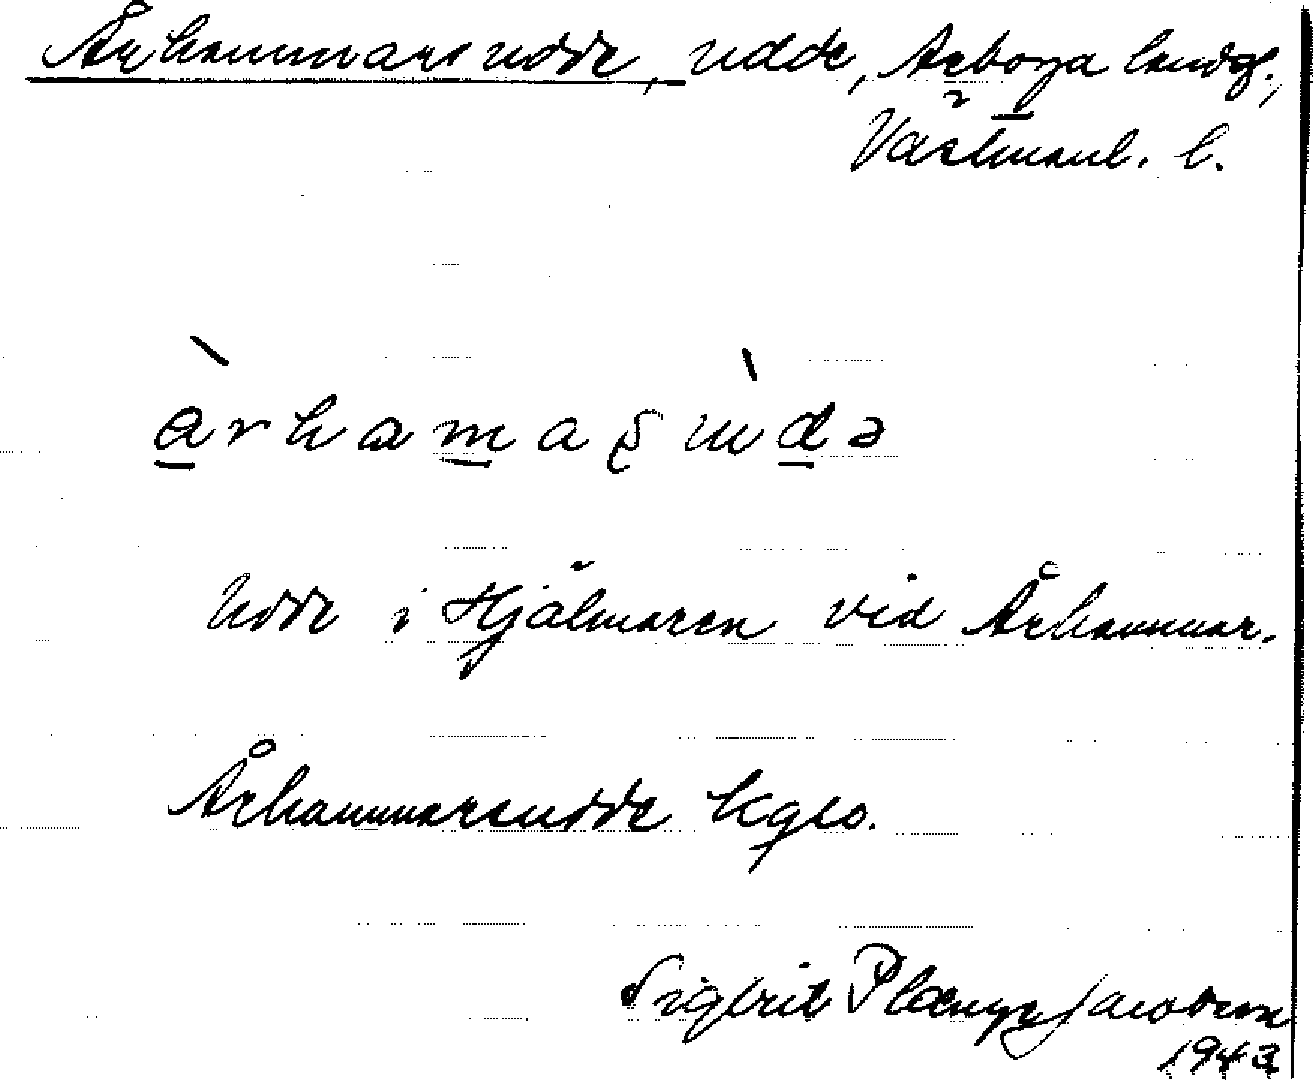 Århammars udde, udde, Arboga landsf.,
Västmanl. l.
àrhamaşùdə
Udde i Hjälmaren vid Århammar.
Århammarsudde Kgeo.
Sigbrit Plænge Jacobson
1943